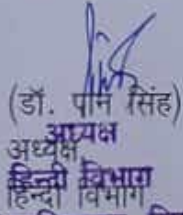 (डॉ. पान सिंह)
अध्यक्ष
अध्यक्ष
हिन्दी विभाग
हिन्दी विभाग